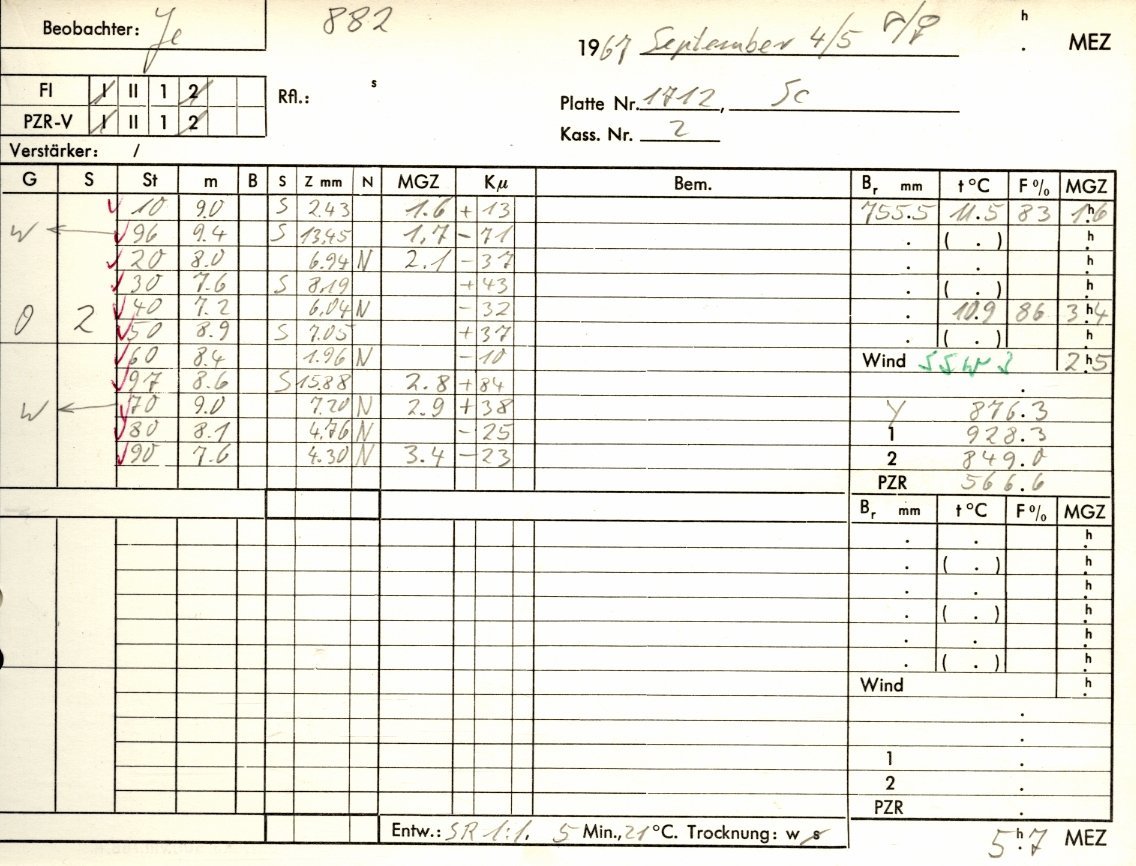 Beobachter: Je
882
1967 September 4/5
h . MEZ
FI I II 1 2
PZR-V I II 1 2
Rfl.: s
Platte Nr. 1712, Sc
Kass. Nr. 2
Verstärker: /
G S St m B S Z mm N MGZ Kμ Bem. Br mm t°C F% MGZ
10 9.0 S 2.43 1.6 + 13 755.5 11.5 83 1.h6
W 96 9.4 S 13.45 1.7 - 71 . ( . ) h.
20 8.0 6.94 N 2.1 - 37 . . h.
30 7.6 S 8.19 + 43 . ( . ) h.
0 2 40 7.2 6.04 N - 32 . 10.9 86 3.h4
50 8.9 S 7.05 + 37 . ( . ) h.
60 8.4 1.96 N - 10 Wind SSW 2.h5
97 8.6 S 15.88 2.8 + 84 .
W 70 9.0 7.20 N 2.9 + 38 Y 876.3
80 8.1 4.76 N - 25 1 928.3
90 7.6 4.30 N 3.4 - 23 2 849.0
PZR 566.6
Br mm t°C F% MGZ
. . h.
. ( . ) h.
. . h.
. ( . ) h.
. . h.
. ( . ) h.
Wind h.
.
.
1 .
2 .
PZR .
Entw.: SR 1:1. 5 Min., 21 °C. Trocknung: w s
5.h7 MEZ